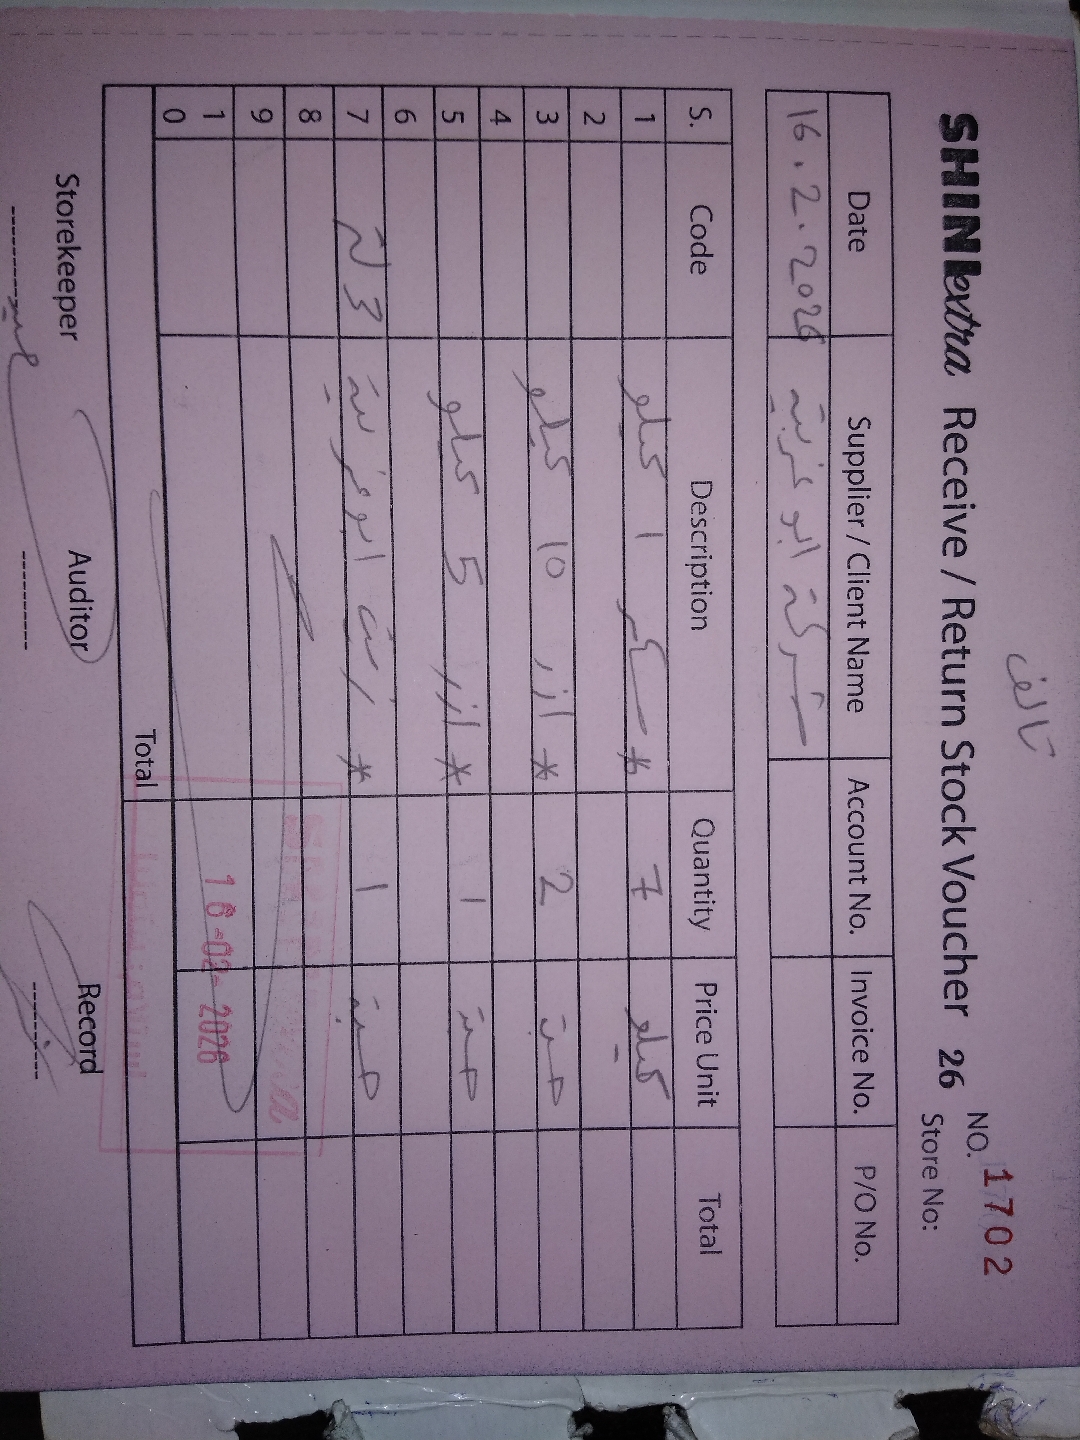 تالف
SHINE extra Receive / Return Stock Voucher 26 NO. 1702
Store No:
Date Supplier / Client Name Account No. Invoice No. P/O No.
16.2.2026 شركة ابو غزية
S. Code Description Quantity Price Unit Total
1 * سكر 1 كيلو 7 كيلو
2
3 * ارز 10 كيلو 2 حبة
4
5 * ارز 5 كيلو 1 حبة
6
7 3 * زيت ابو غزية 1 حبة
8
9
10
16-02-2026
Total
Storekeeper Auditor Record